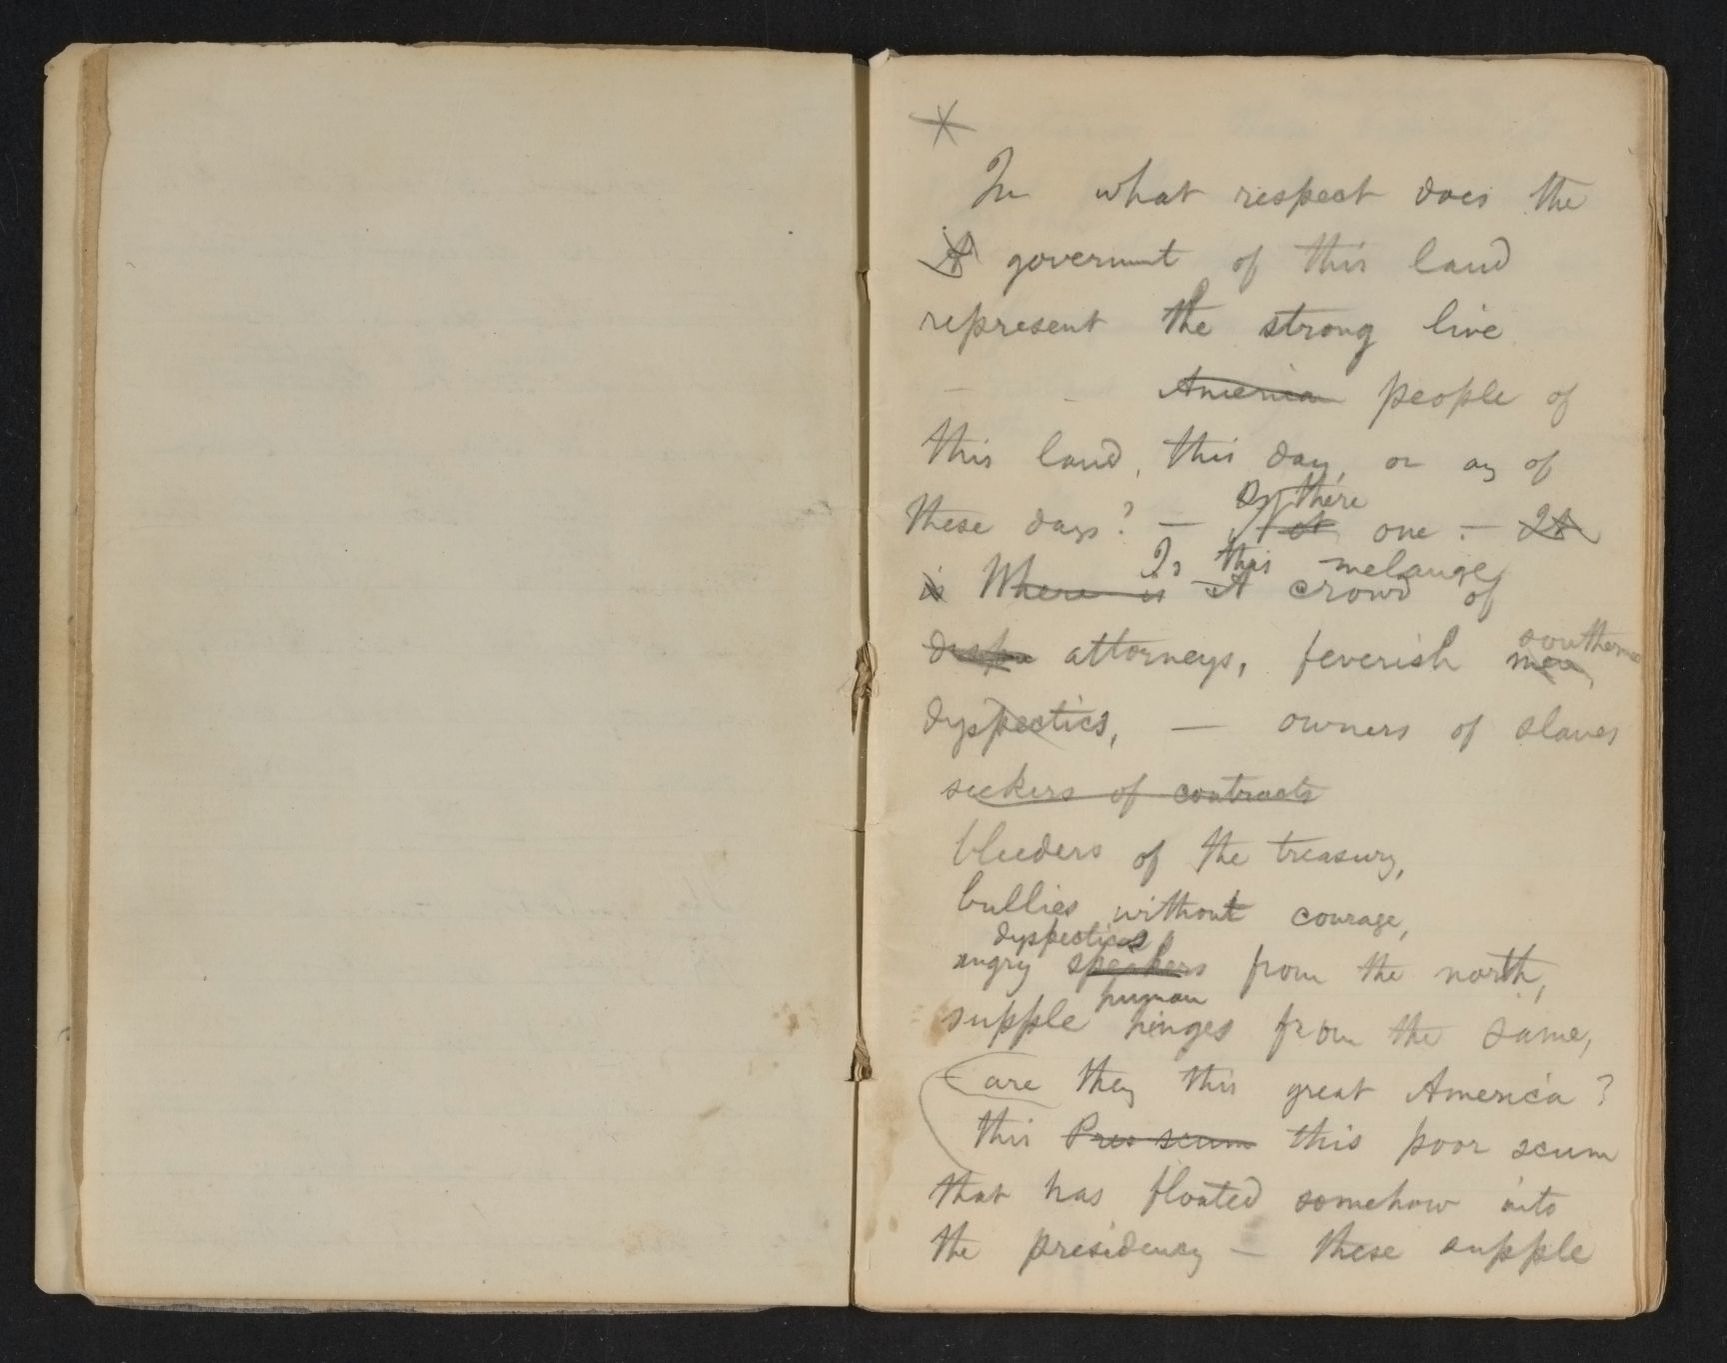 In what respect does the
A government of this land
represent the strong live
American people of
this land, this day, or any of
these days? — Is there
it one — It
Is this melange
is Where is A crowd of
southerners
attorneys, feverish men,
dyspeptics, — owners of slaves
seekers of contracts
bleeders of the treasury,
bullies without courage,
dyspeptics
angry speakers from the north,
human
supple hinges from the same,
are they this great America?
this Pres scum this poor scum
that has floated somehow into
the presidency — these supple